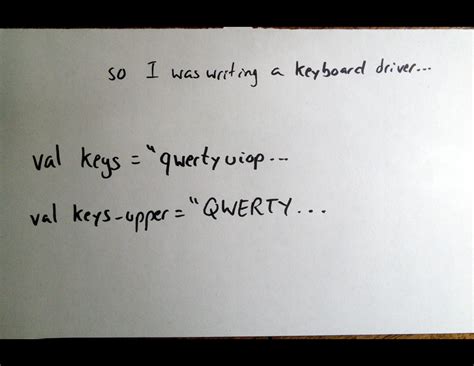 so I was writing a keyboard driver...
val keys = "qwertyuiop...
val keys-upper = "QWERTY...